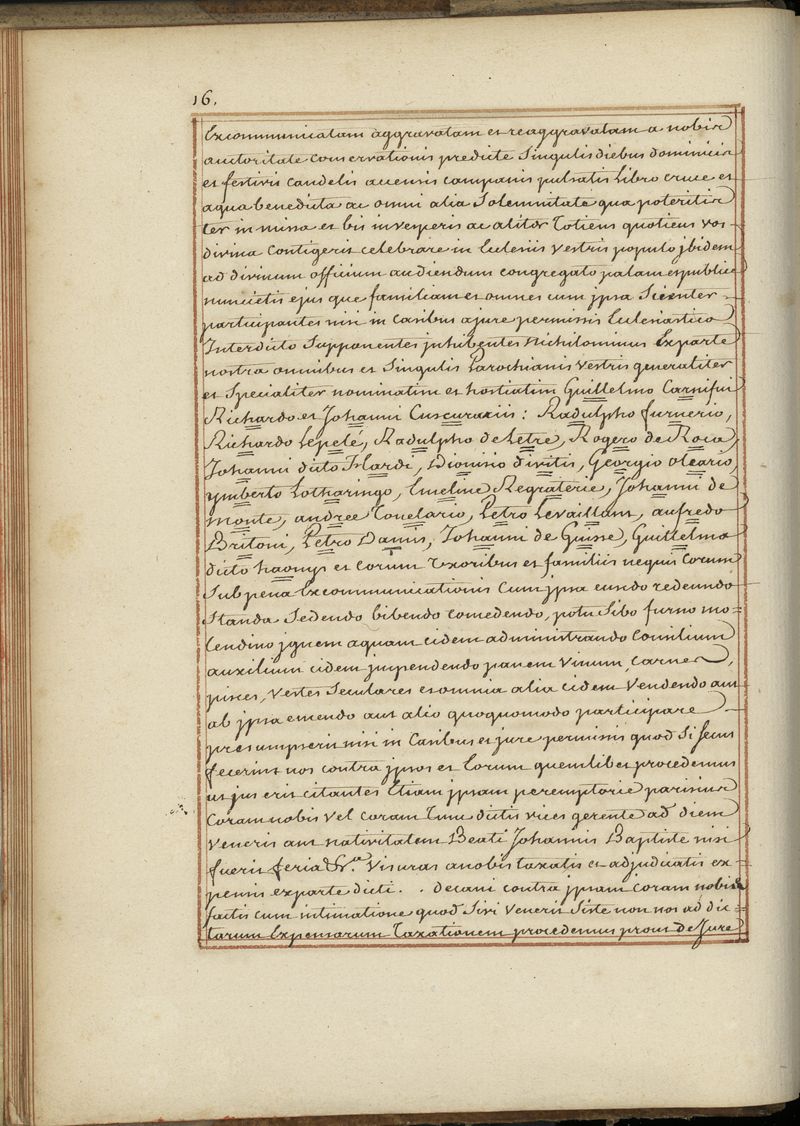 16.
Excommunicatam aggravatam et reaggravatam a nobis
auctoritate conservationis predicte Singulis diebus dominicis
et festivis candelis accensis campanis pulsatis Libro cruce et
aqua benedicta ac omni alia Solemnitate qua poteritis
ter in missa et bis in vesperis ac aliter Totiens quotiens vos
divina Contigerit celebrare in Ecclesiis vestris populo jbidem
ad divinum officium audiendum congregato palam et publice
nuncietis ejus que familiam et omnes cum jpsa Scienter
participantes nisi in Casibus a jure permissis Ecclesiastico
Interdicto Supponentes jnhibentes Nichilominus Ex parte
nostra omnibus et Singulis Parochianis Vestris generaliter
et Specialiter nominatim et hostiatim Guillelmo Carnifici
Richardo et Johanni Cuscurariis : Radulpho furnerio,
Richardo Lepelé, Radulpho de Letre, Rogero de Roca,
Johanni dicto Hardi, Dionisio divitis, Georgio oleario,
ymberto Lotharingo, Emeline Regraterie, Johanni de
monte, andree Tonelario, Petro Levaillant, aufredo
Britoni, Petro Damis, Johanni de Guisse, Guillelmo
dicto haonys et eorum Uxoribus et familiis nequis eorum
Sub pena Excommunicationis Cum jpsa eundo redeundo
Standa Sedendo bibendo comedendo, potu Sibo furno mo=
lendino jgnem aquam eidem administrando Consilium
auxilium eidem jmpendendo panem Vinum, carnes,
pisces, Vestes Seculares et omnia alia eidem Vendendo aut
ab jpsa emendo aut alio quoquomodo participare
presumpserit nisi in Casibus et jure permissis quod Si Secus
fecerint nos contra jpsos et Eorum quemlibet procedemus
ut jus erit citantes Etiam jpsam peremptorie parisius
Coram nobis Vel Coram Tunc dictis vices gerente ad diem
Veneris ant nativitatem Beati Johannis Baptiste nisi
fuerit feria &c.a Visuras a nobis taxatis et adjudicatis ex=
pensis ex parte dicti . . decani contra jpsam Coram nobis
factis cum intimatione quod Sivi Venerit Sive non nos ad dic=
tarum Expensarum Taxationem procedemus prout de Jure